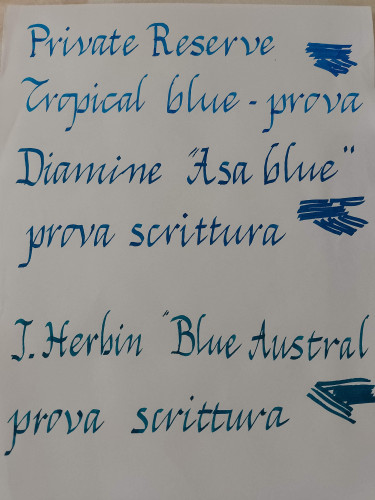 Private Reserve
Tropical blue - prova
Diamine "Asa blue"
prova scrittura
J. Herbin "Blue Austral
prova scrittura